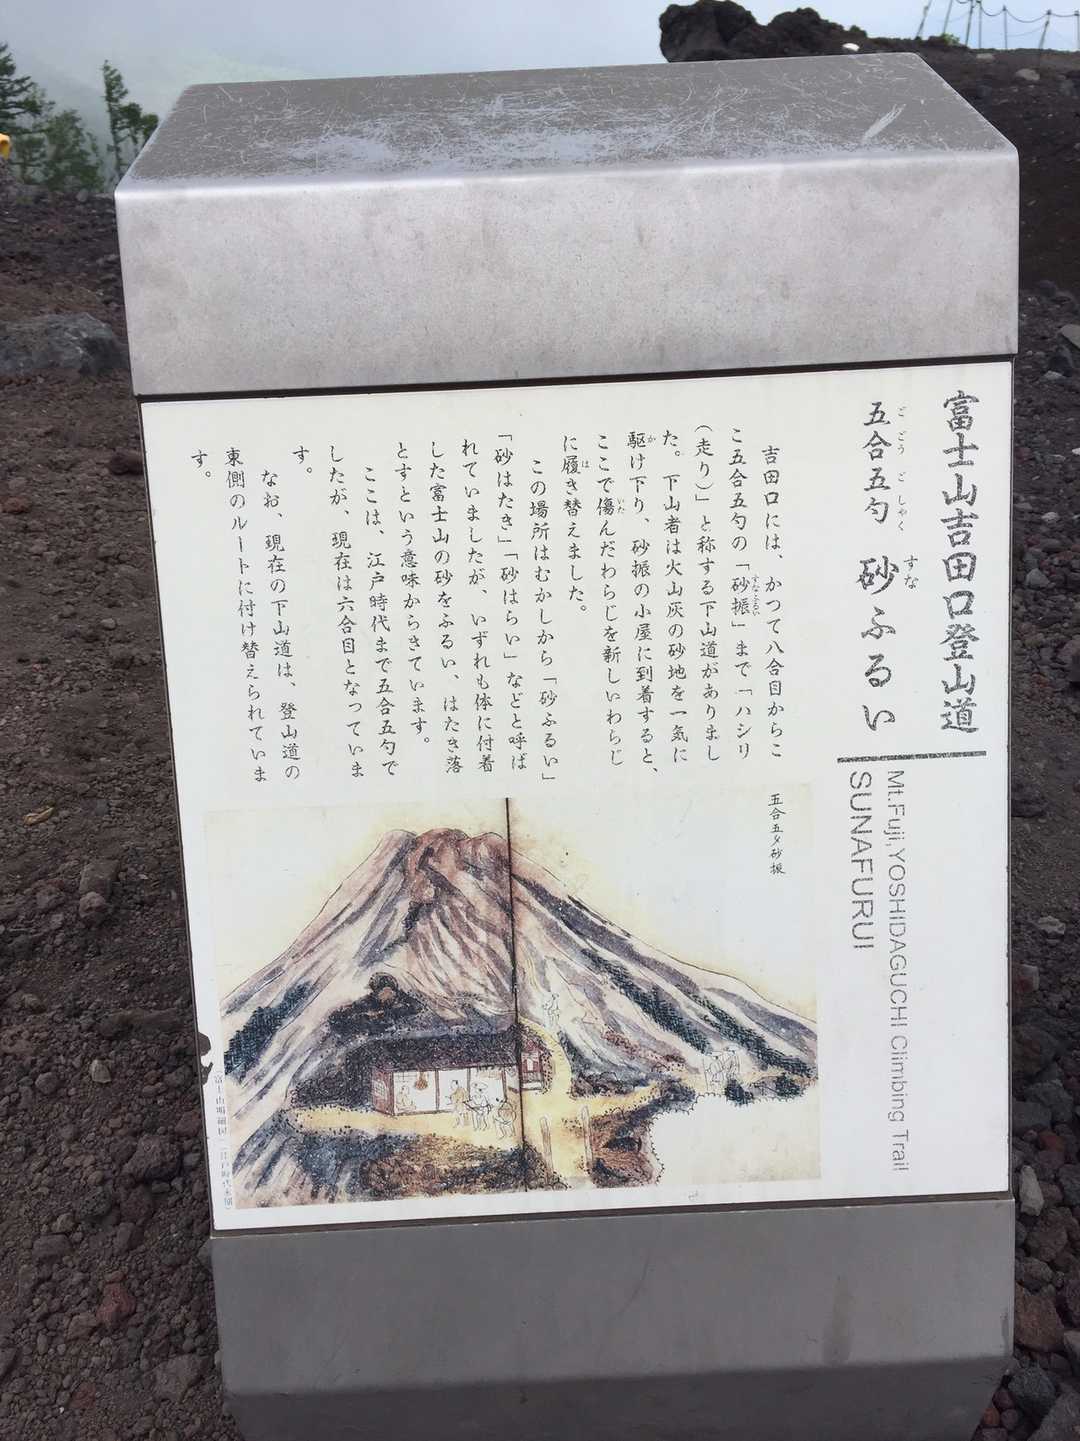 富士山吉田口登山道
五合五勺 砂ふるい
ごごうごしゃく すな
Mt.Fuji,YOSHIDAGUCHI Climbing Trail
SUNAFURUI
吉田口には、かつて八合目からこ
こ五合五勺の「砂振」まで「ハシリ
すなふるい
(走り)」と称する下山道がありまし
た。下山者は火山灰の砂地を一気に
駆け下り、砂振の小屋に到着すると、
か
ここで傷んだわらじを新しいわらじ
いた
に履き替えました。
は
この場所はむかしから「砂ふるい」
「砂はたき」「砂はらい」などと呼ば
れていましたが、いずれも体に付着
した富士山の砂をふるい、はたき落
とすという意味からきています。
ここは、江戸時代まで五合五勺で
したが、現在は六合目となっていま
す。
なお、現在の下山道は、登山道の
東側のルートに付け替えられていま
す。
五合五夕砂振
富士山明細図